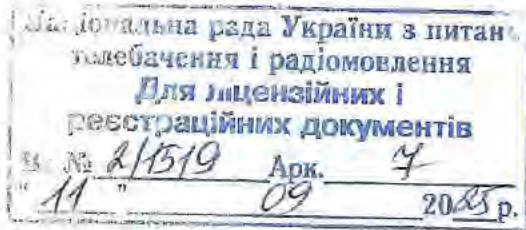 Національна рада України з питань
телебачення і радіомовлення
Для ліцензійних і
реєстраційних документів
№ 2/1519 Арк. 7
"11" 09 2025 р.